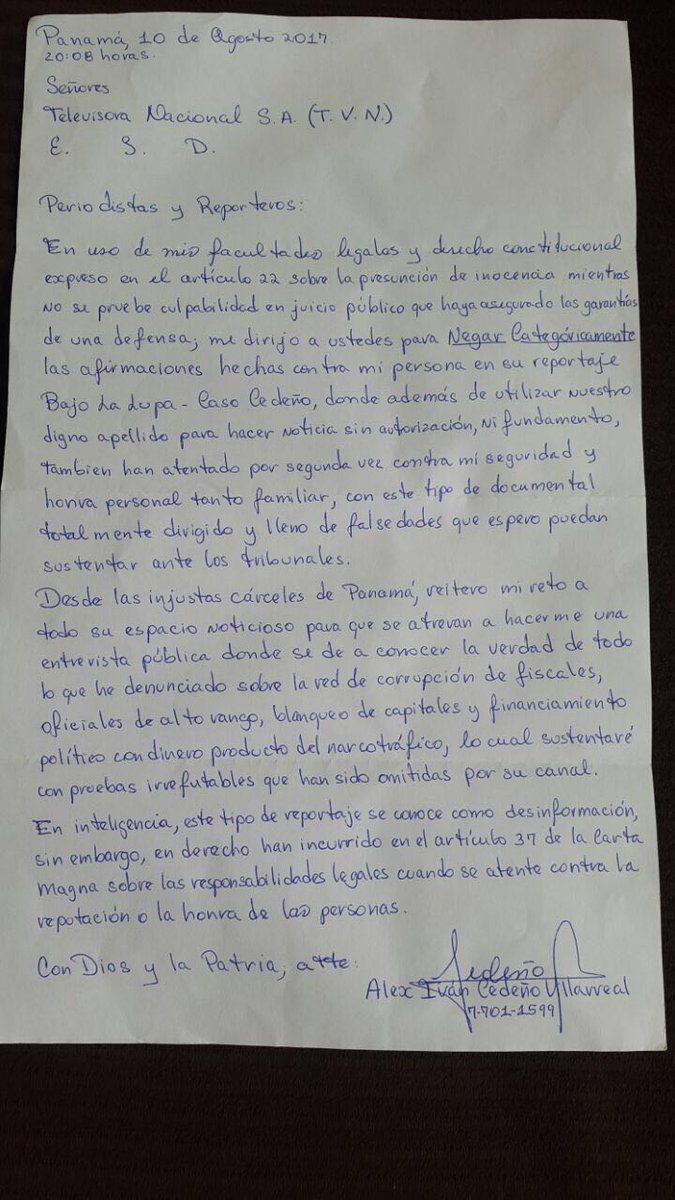 Panamá, 10 de Agosto 2017.
20:08 horas.
Señores
Televisora Nacional S.A. (T.V.N.)
E. S. D.
Periodistas y Reporteros:
En uso de mis facultades legales y derecho constitucional
expreso en el artículo 22 sobre la presunción de inocencia mientras
no se pruebe culpabilidad en juicio público que haya asegurado las garantías
de una defensa; me dirijo a ustedes para Negar Categóricamente
las afirmaciones hechas contra mi persona en su reportaje
Bajo La Lupa - Caso Cedeño, donde además de utilizar nuestro
digno apellido para hacer noticia sin autorización, ni fundamento,
tambien han atentado por segunda vez contra mi seguridad y
honra personal tanto familiar, con este tipo de documental
totalmente dirigido y lleno de falsedades que espero puedan
sustentar ante los tribunales.
Desde las injustas cárceles de Panamá, reitero mi reto a
todo su espacio noticioso para que se atrevan a hacerme una
entrevista pública donde se de a conocer la verdad de todo
lo que he denunciado sobre la red de corrupción de fiscales,
oficiales de alto rango, blanqueo de capitales y financiamiento
político con dinero producto del narcotráfico, lo cual sustentaré
con pruebas irrefutables que han sido omitidas por su canal.
En inteligencia, este tipo de reportaje se conoce como desinformación,
sin embargo, en derecho han incurrido en el artículo 37 de la Carta
Magna sobre las responsabilidades legales cuando se atente contra la
reputación o la honra de las personas.
Con Dios y la Patria, atte:
Cedeño
Alex Iván Cedeño Villarreal
7-701-1599